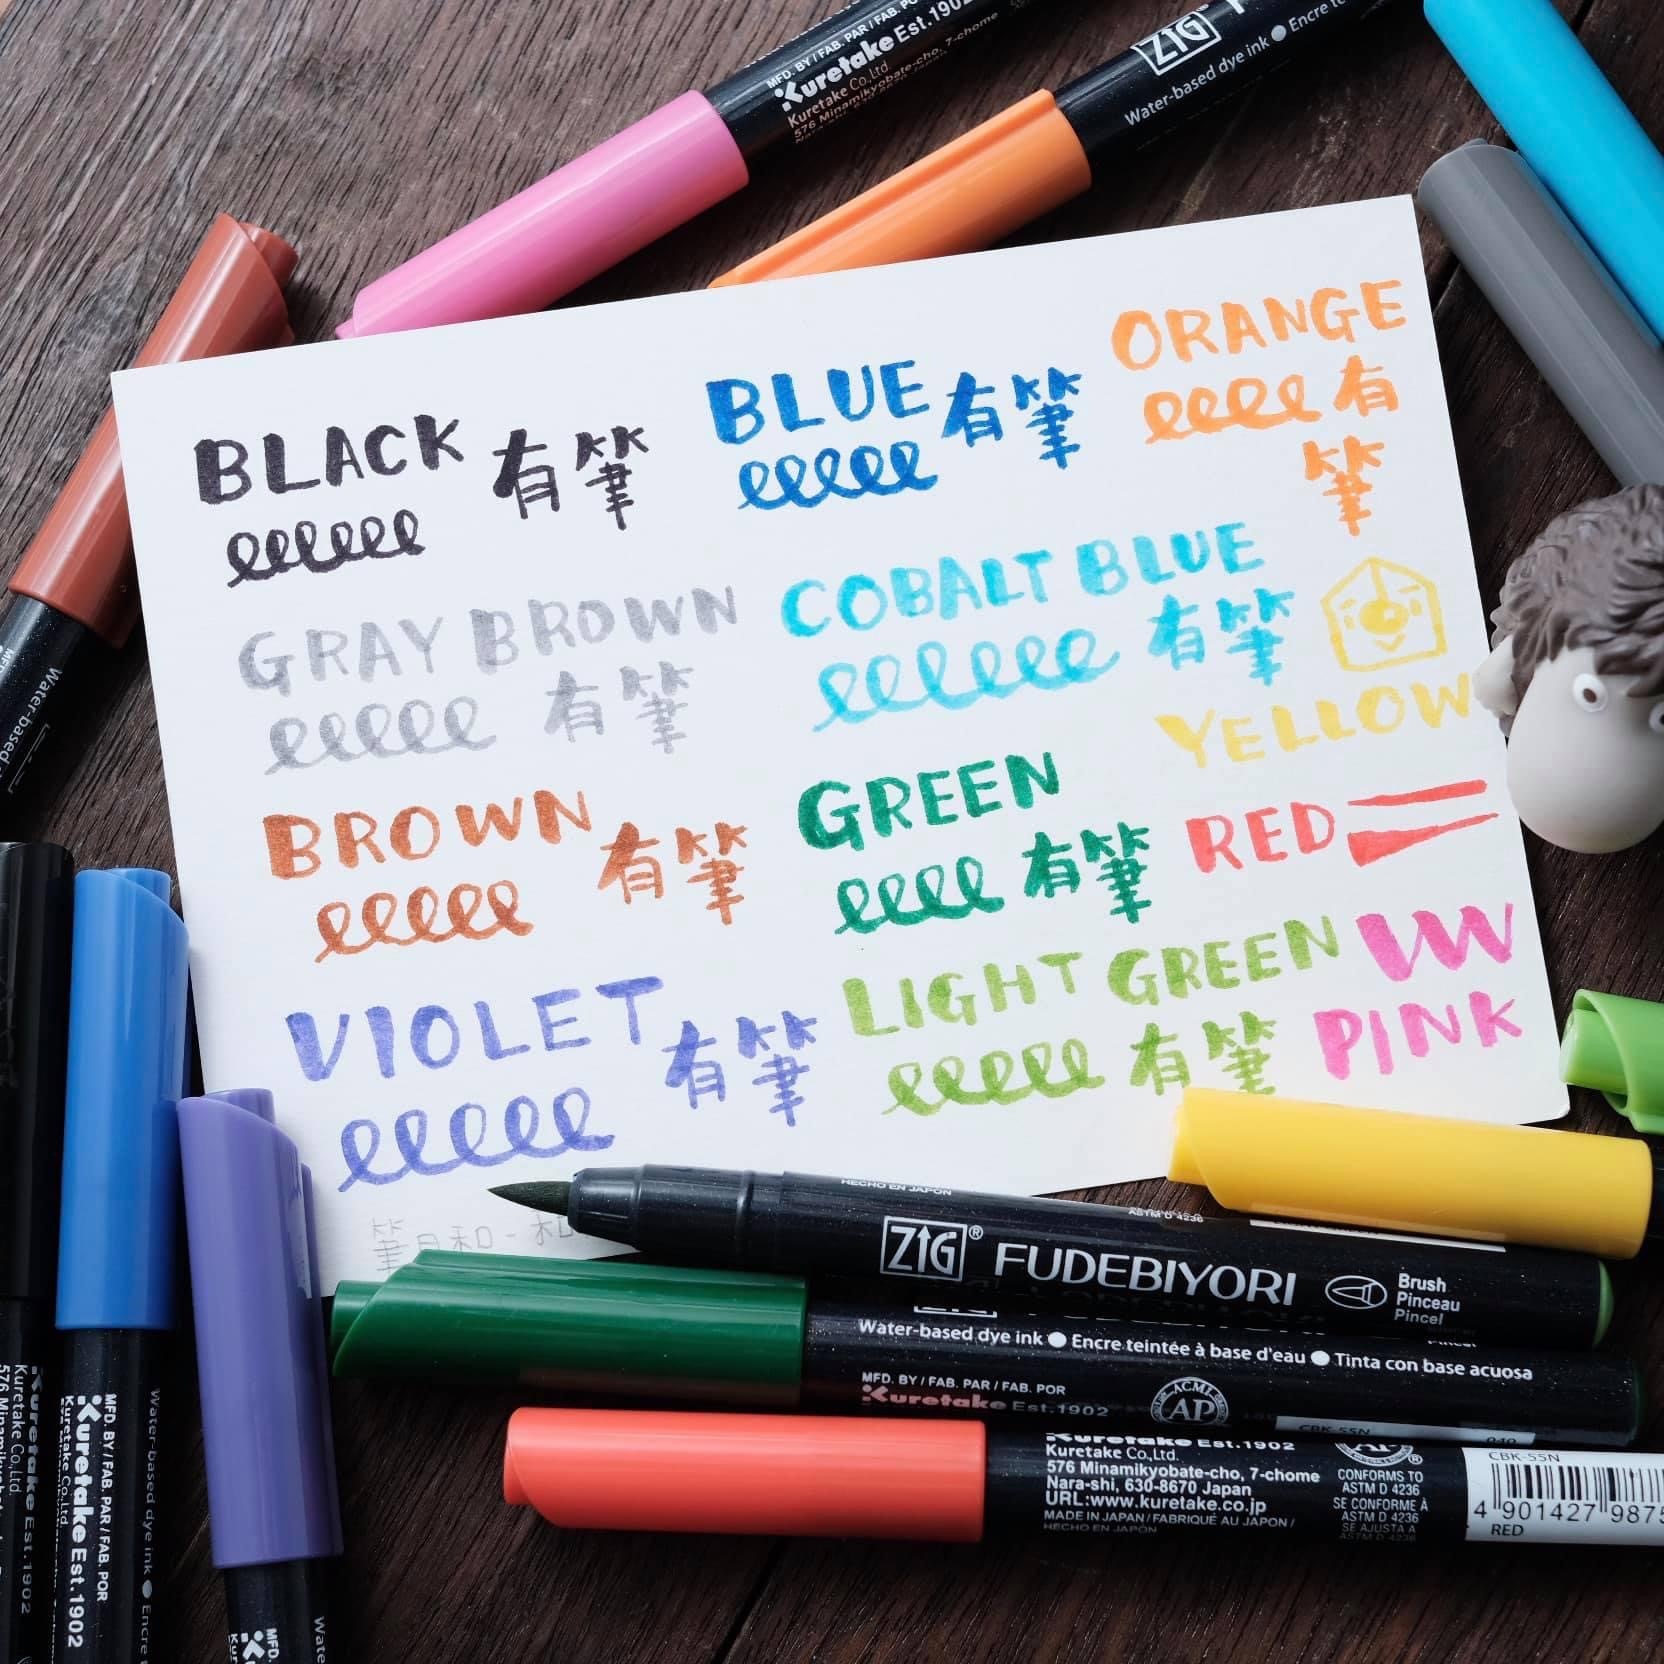 MFD. BY / FAB. PAR / FAB. POR
Kuretake Est.1902
Kuretake Co.,Ltd.
576 Minamikyobate-cho, 7-chome
ZIG
Water-based dye ink ● Encre
BLACK 有筆
BLUE 有筆
ORANGE
有
筆
GRAY BROWN
有筆
COBALT BLUE
有筆
YELLOW
BROWN
有筆
GREEN
有筆
RED
VIOLET
有筆
LIGHT GREEN
有筆
PINK
HECHO EN JAPÓN
ASTM D 4236
ZIG® FUDEBIYORI
Brush
Pinceau
Pincel
Water-based dye ink ● Encre teintée à base d'eau ● Tinta con base acuosa
MFD. BY / FAB. PAR / FAB. POR
Kuretake Est.1902
ACMI
AP
CBK-55N
Kuretake Est.1902
Kuretake Co.,Ltd.
576 Minamikyobate-cho, 7-chome
Nara-shi, 630-8670 Japan
URL:www.kuretake.co.jp
MADE IN JAPAN / FABRIQUÉ AU JAPON /
HECHO EN JAPÓN
CONFORMS TO
ASTM D 4236
SE CONFORME À
ASTM D 4236
SE AJUSTA A
ASTM D 4236
CBK-55N
4 901427 9875
RED
Water-based
Kuretake Est.1902
Kuretake Co.,Ltd.
MFD. BY / FAB. PAR / FAB. POR
Kuretake Est.1902
Kuretake Co.,Ltd.
Water-based dye ink ● Encre